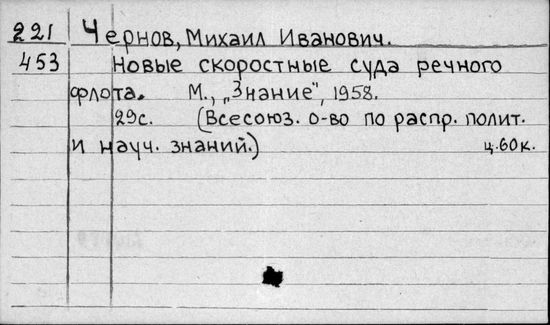 221 Чернов, Михаил Иванович.
453 Новые скоростные суда речного
флота. М., „Знание", 1958.
29с. (Всесоюз. о-во по распр. полит.
и науч. знаний.) ц. 60к.